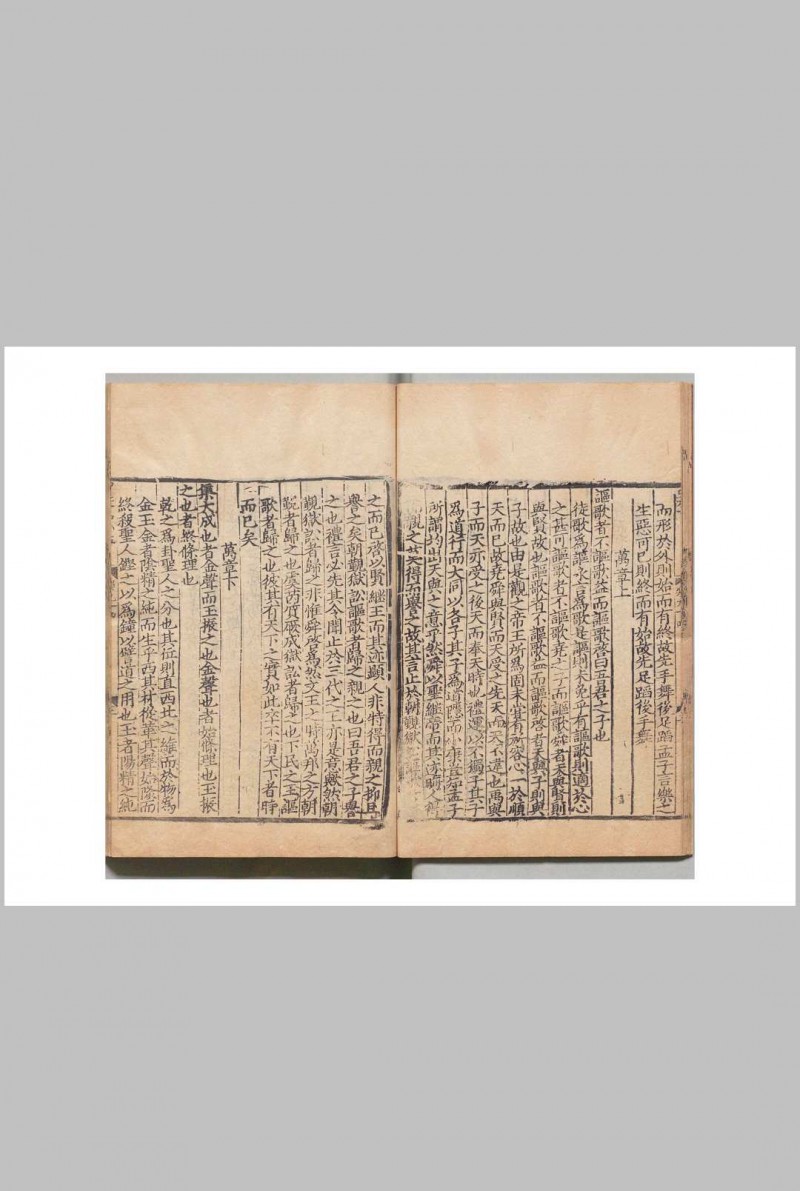 而形於外則始而有終故先手舞後足蹈孟子言樂之
生惡可已則終而有始故先足蹈後手舞
萬章上
謳歌者不謳歌益而謳歌啓曰吾君之子也
徒歌為謳永言為歌是謳則未免乎有謳歌則適於心
之甚可謳歌者不謳歌堯之子而謳歌舜者天與賢則
與賢故也謳歌者不謳歌益而謳歌啓者天與子則與
子故也由是觀之帝王所為固未嘗有於容心一於順
天而已故堯舜與賢而受之先天而天不違也禹與
子而天亦受之後天而奉天時也禮運以不獨子其子
為道行而大同以各子其子為道隱而小康豈知孟子
所謂均出天與之意乎然舜以聖繼帝而其
觀之 得而譽之故其言止於朝覲獄
之而已啓以賢繼王而其迹顯人非特得而親之抑且
譽之矣朝覲獄訟謳歌者歸之親之也曰吾君之子譽
之也禮言必先其令聞止於三代之王亦是意歟然朝
覲獄訟者歸之非惟舜啓為然文王之時萬邦之方朝
覲者歸之也虞芮質厥成獄訟者歸之也下民之王謳
歌者歸之也彼其有天下之實如此卒不有天下者時
而已矣
萬章下
集大成也者金聲而玉振之也金聲也者始條理也玉振
之也者終條理也
乾之為卦聖人之分也其位則直西北之維而於物為
金玉金者陰精之純而生乎西其材從革其聲始隆而
終殺聖人鑑之以為鐘以譬道之用也玉者陽精之純